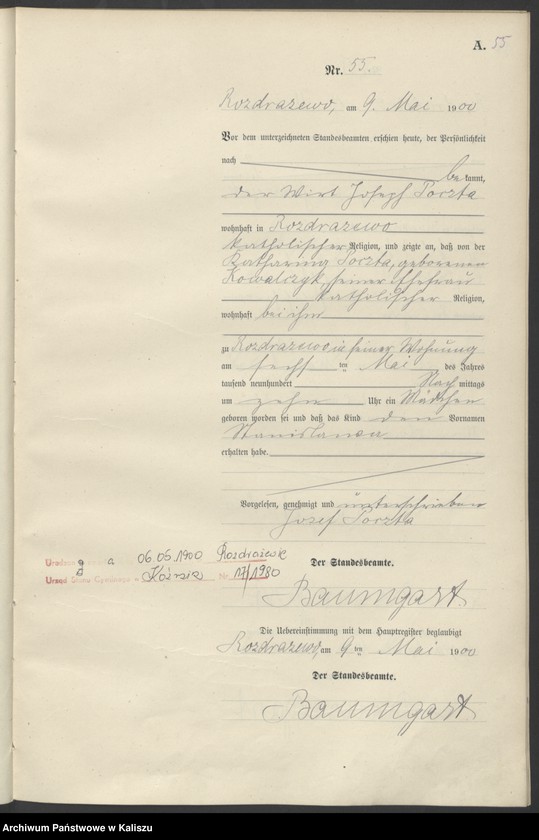 A. 55
Nr. 55.
Rozdrazewo, am 9. Mai 1900
Vor dem unterzeichneten Standesbeamten erschien heute, der Persönlichkeit
nach be kannt,
der Wirt Joseph Porzta
wohnhaft in Rozdrazewo
katholischer Religion, und zeigte an, daß von der
Katharina Porzta, geborenen
Kowalczyk, seiner Ehefrau
katholischer Religion,
wohnhaft bei ihm
zu Rozdrazewo in seiner Wohnung
am sechsten Mai des Jahres
tausend neunhundert Nach mittags
um zehn Uhr ein Mädchen
geboren worden sei und daß das Kind den Vornamen
Stanislawa
erhalten habe.
Vorgelesen, genehmigt und unterschrieben
Josef Porzta
06.05.1900 Rozdrażew
Urząd Stanu Cywilnego w Koźmin Nr. 17/1980
Der Standesbeamte.
Baumgart
Die Uebereinstimmung mit dem Hauptregister beglaubigt
Rozdrazewo, am 9ten Mai 1900
Der Standesbeamte.
Baumgart
Archiwum Państwowe w Kaliszu